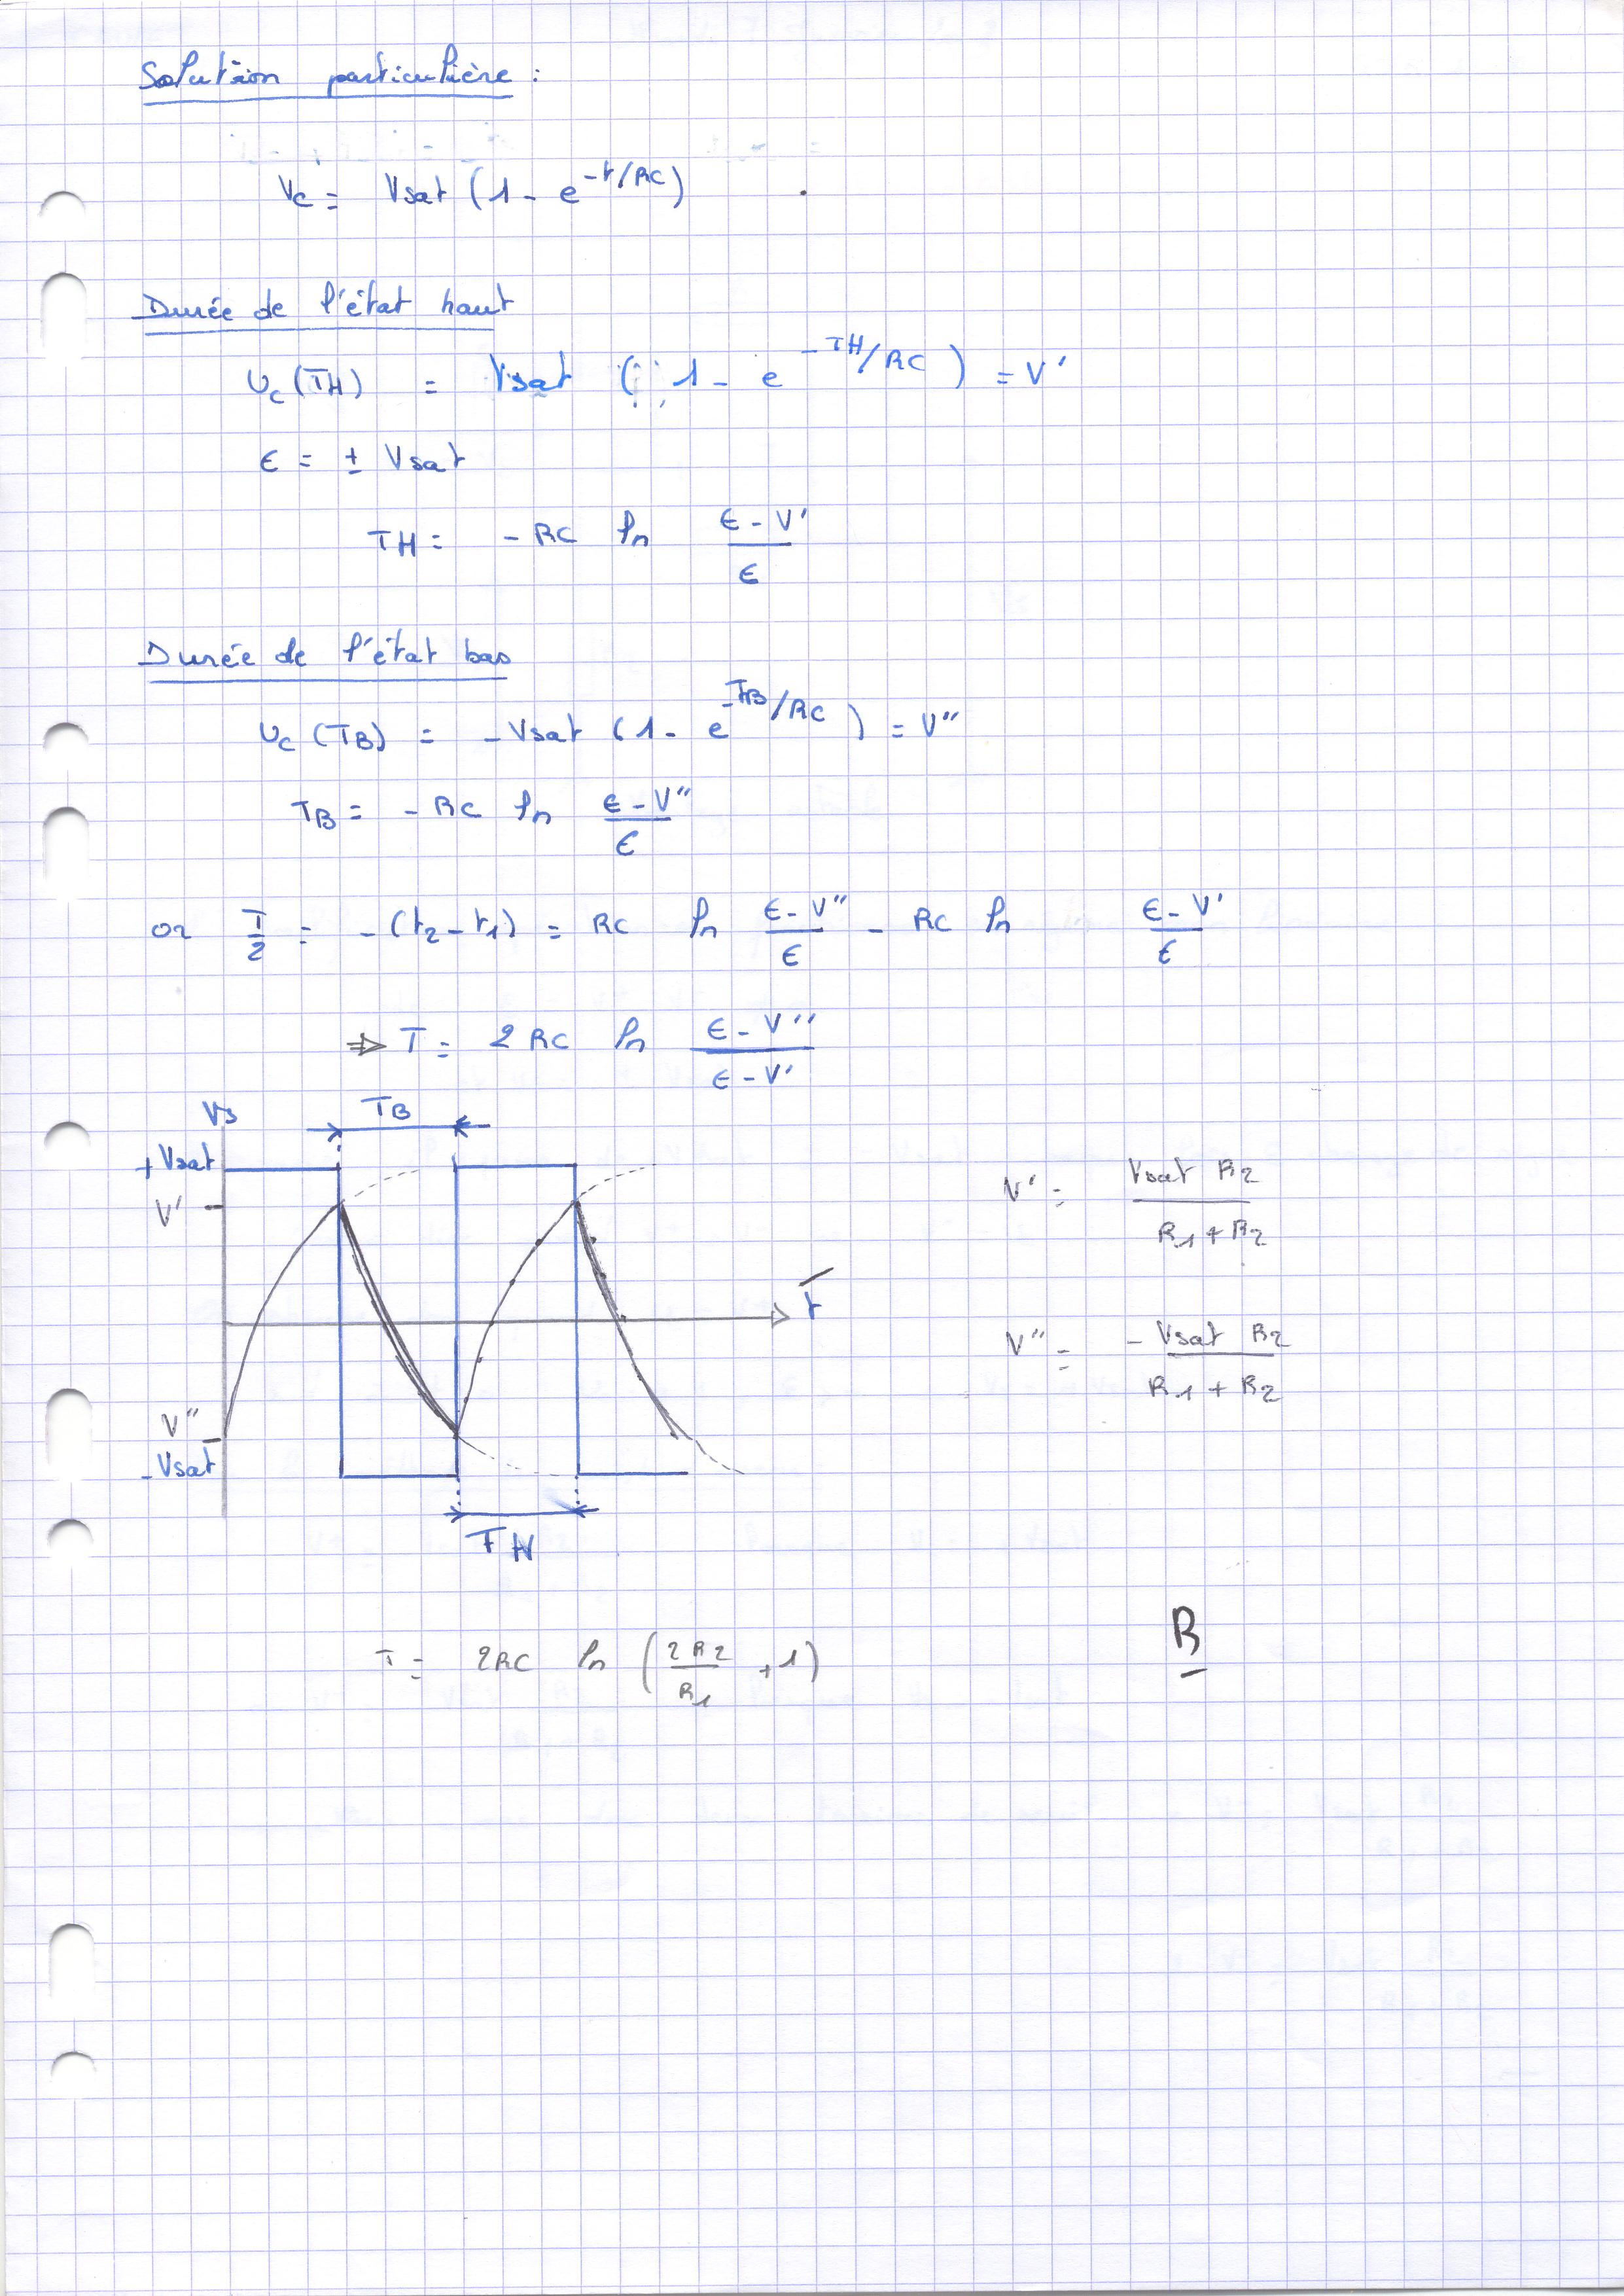 Solution particulière :
Vc = Vsat (1 - e^-t/RC)
Durée de l'état haut
Uc (TH) = Vsat (1 - e^-TH/RC) = V'
ϵ = ± Vsat
TH = - RC ln (ϵ - V')/ϵ
Durée de l'état bas
Uc (TB) = - Vsat (1 - e^-TB/RC) = V''
TB = - RC ln (ϵ - V'')/ϵ
or T/2 = - (t2 - t1) = RC ln (ϵ - V'')/ϵ - RC ln (ϵ - V')/ϵ
⇒ T = 2 RC ln (ϵ - V'')/(ϵ - V')
Vs
TB
+ Vsat
V'
t
V''
- Vsat
TH
V' = (Vsat R2)/(R1 + R2)
V'' = (- Vsat R2)/(R1 + R2)
T = 2RC ln (2R2/R1 + 1)
B